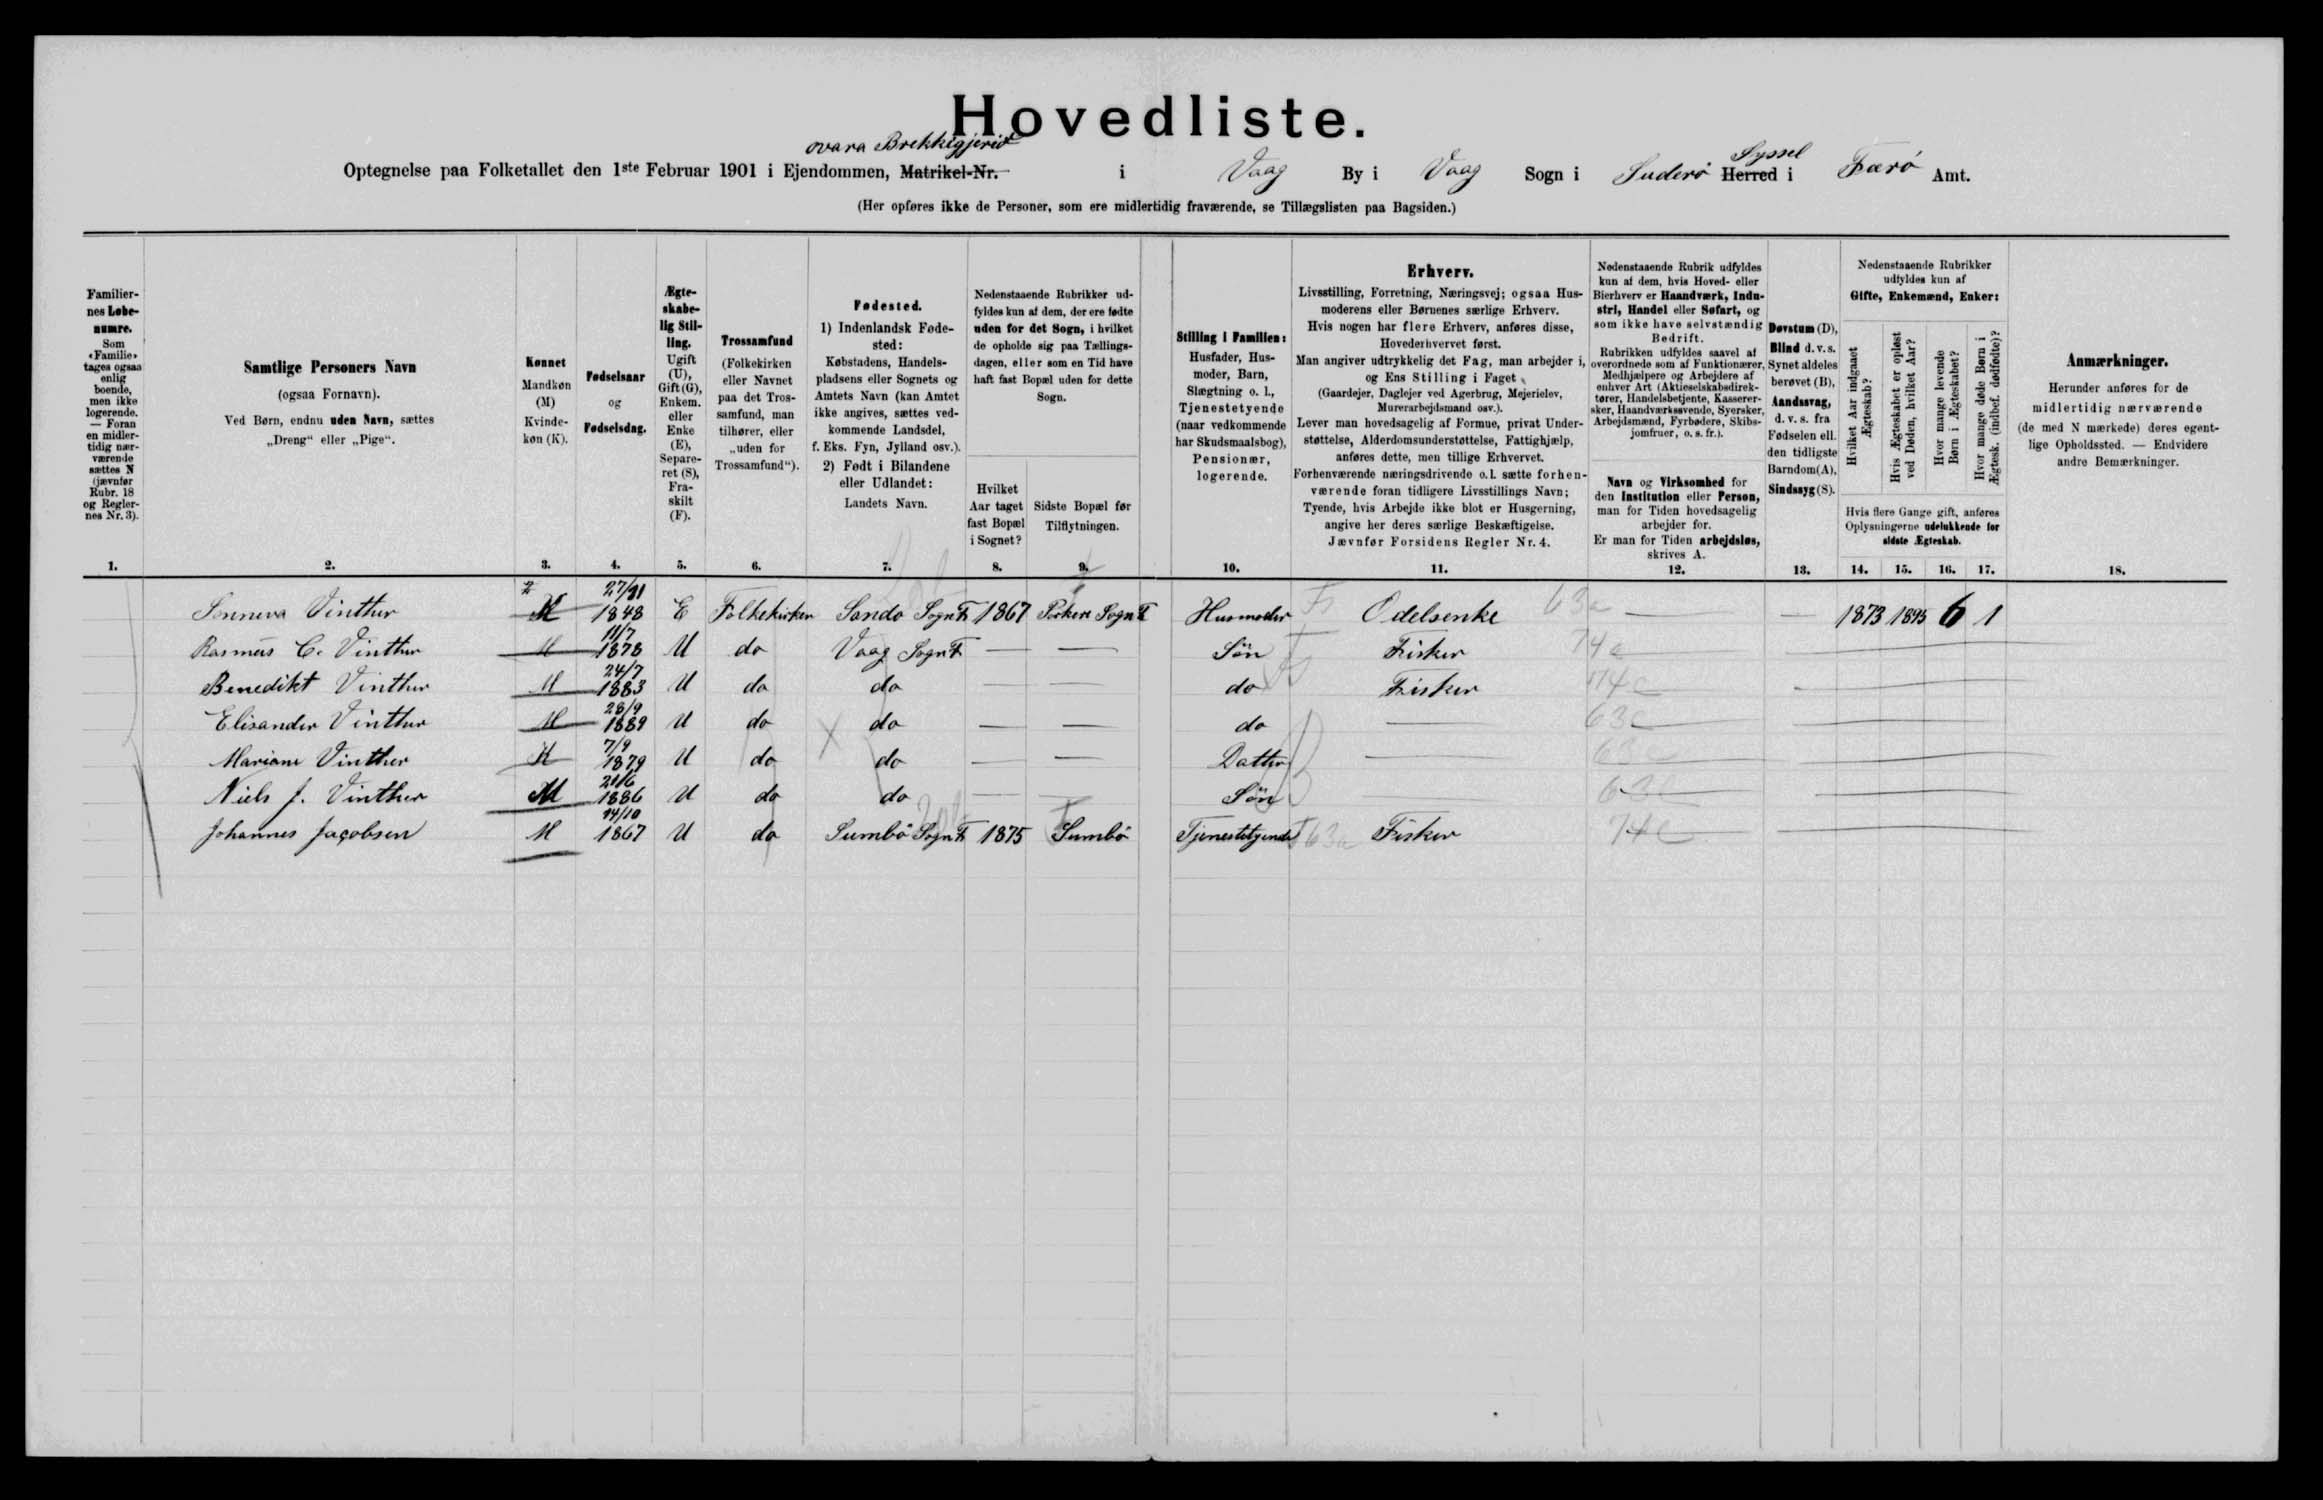 Hovedliste.
ovara Brekkigjerid
Optegnelse paa Folketallet den 1ste Februar 1901 i Ejendommen, Matrikel-Nr. i Vaag By i Vaag Sogn i Suderø Syssel Herred i Færø Amt.
(Her opføres ikke de Personer, som ere midlertidig fraværende, se Tillægslisten paa Bagsiden.)
Familiernes Løbenumre. Som «Familie» tages ogsaa enlig boende, men ikke logerende. — Foran en midlertidig nærværende sættes N (jævnfør Rubr. 18 og Reglernes Nr. 3).
Samtlige Personers Navn
(ogsaa Fornavn).
Ved Børn, endnu uden Navn, sættes
„Dreng“ eller „Pige“.
Kønnet
Mandkøn (M)
Kvindekøn (K).
Fødselsaar
og
Fødselsdag.
Ægteskabelig Stilling. Ugift (U), Gift (G), Enkem. eller Enke (E), Separeret (S), Fraskilt (F).
Trossamfund
(Folkekirken eller Navnet paa det Trossamfund, man tilhører, eller „uden for Trossamfund“).
Fødested.
1) Indenlandsk Fødested:
Købstadens, Handelspladsens eller Sognets og Amtets Navn (kan Amtet ikke angives, sættes vedkommende Landsdel, f. Eks. Fyn, Jylland osv.).
2) Født i Bilandene eller Udlandet:
Landets Navn.
Nedenstaaende Rubrikker udfyldes kun af dem, der ere fødte uden for det Sogn, i hvilket de opholde sig paa Tællingsdagen, eller som en Tid have haft fast Bopæl uden for dette Sogn.
Hvilket Aar taget fast Bopæl i Sognet?
Sidste Bopæl før Tilflytningen.
Stilling i Familien:
Husfader, Husmoder, Barn, Slægtning o. l., Tjenestetyende (naar vedkommende har Skudsmaalsbog), Pensionær, logerende.
Erhverv.
Livsstilling, Forretning, Næringsvej; ogsaa Husmoderens eller Børnenes særlige Erhverv.
Hvis nogen har flere Erhverv, anføres disse, Hovederhvervet først.
Man angiver udtrykkelig det Fag, man arbejder i, og Ens Stilling i Faget
(Gaardejer, Daglejer ved Agerbrug, Mejerielev, Murerarbejdsmand osv.).
Lever man hovedsagelig af Formue, privat Understøttelse, Alderdomsunderstøttelse, Fattighjælp, anføres dette, men tillige Erhvervet.
Forhenværende næringsdrivende o. l. sætte forhenværende foran tidligere Livsstillings Navn;
Tyende, hvis Arbejde ikke blot er Husgerning, angive her deres særlige Beskæftigelse.
Jævnfør Forsidens Regler Nr. 4.
Nedenstaaende Rubrik udfyldes kun af dem, hvis Hoved- eller Bierhverv er Haandværk, Industri, Handel eller Søfart, og som ikke have selvstændig Bedrift.
Rubrikken udfyldes saavel af overordnede som af Funktionærer, Medhjælpere og Arbejdere af enhver Art (Aktieselskabsdirektører, Handelsbetjente, Kasserersker, Haandværkssvende, Syersker, Arbejdsmænd, Fyrbødere, Skibsjomfruer, o. s. fr.).
Navn og Virksomhed for den Institution eller Person, man for Tiden hovedsagelig arbejder for.
Er man for Tiden arbejdsløs, skrives A.
Døvstum (D), Blind d. v. s. Synet aldeles berøvet (B), Aandssvag, d. v. s. fra Fødselen ell. den tidligste Barndom (A), Sindssyg (S).
Nedenstaaende Rubrikker udfyldes kun af
Gifte, Enkemænd, Enker:
Hvilket Aar indgaaet Ægteskab?
Hvis Ægteskabet er opløst ved Døden, hvilket Aar?
Hvor mange levende Børn i Ægteskabet?
Hvor mange døde Børn i Ægtesk. (indbef. dødfødte)?
Hvis flere Gange gift, anføres Oplysningerne udelukkende for sidste Ægteskab.
Anmærkninger.
Herunder anføres for de midlertidig nærværende (de med N mærkede) deres egentlige Opholdssted. — Endvidere andre Bemærkninger.
1. 2. 3. 4. 5. 6. 7. 8. 9. 10. 11. 12. 13. 14. 15. 16. 17. 18.
Sunneva Vinther 27/11 1848 E Folkekirken Sando Sogn F 1867 Porkere Sogn F Husmoder Odelsenke 63a — — 1873 1895 6 1
Rasmus C. Vinther M 11/7 1878 U do Vaag Sogn F — — Søn Fisker 74c
Benedikt Vinther M 24/7 1883 U do do — — do Fisker 74c
Elisander Vinther M 28/9 1889 U do do — — do — 63c
Mariane Vinther K 7/9 1879 U do do — — Datter — 63c
Niels J. Vinther M 21/6 1886 U do do — — Søn — 63c
Johannes Jacobsen M 14/10 1867 U do Sumbø Sogn F 1875 Sumbø Tjenestetyende 63a Fisker 74c